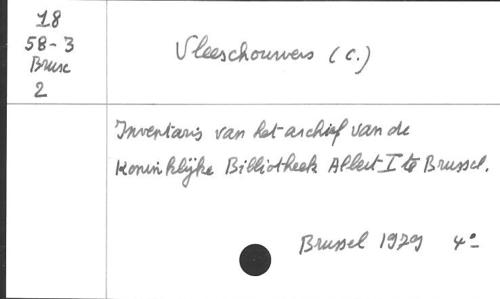 18
58-3
Brusc
2
Vleeschouwers (C.)
Inventaris van het archief van de
Koninklijke Bibliotheek Albert I te Brussel.
Brussel 1979 4°